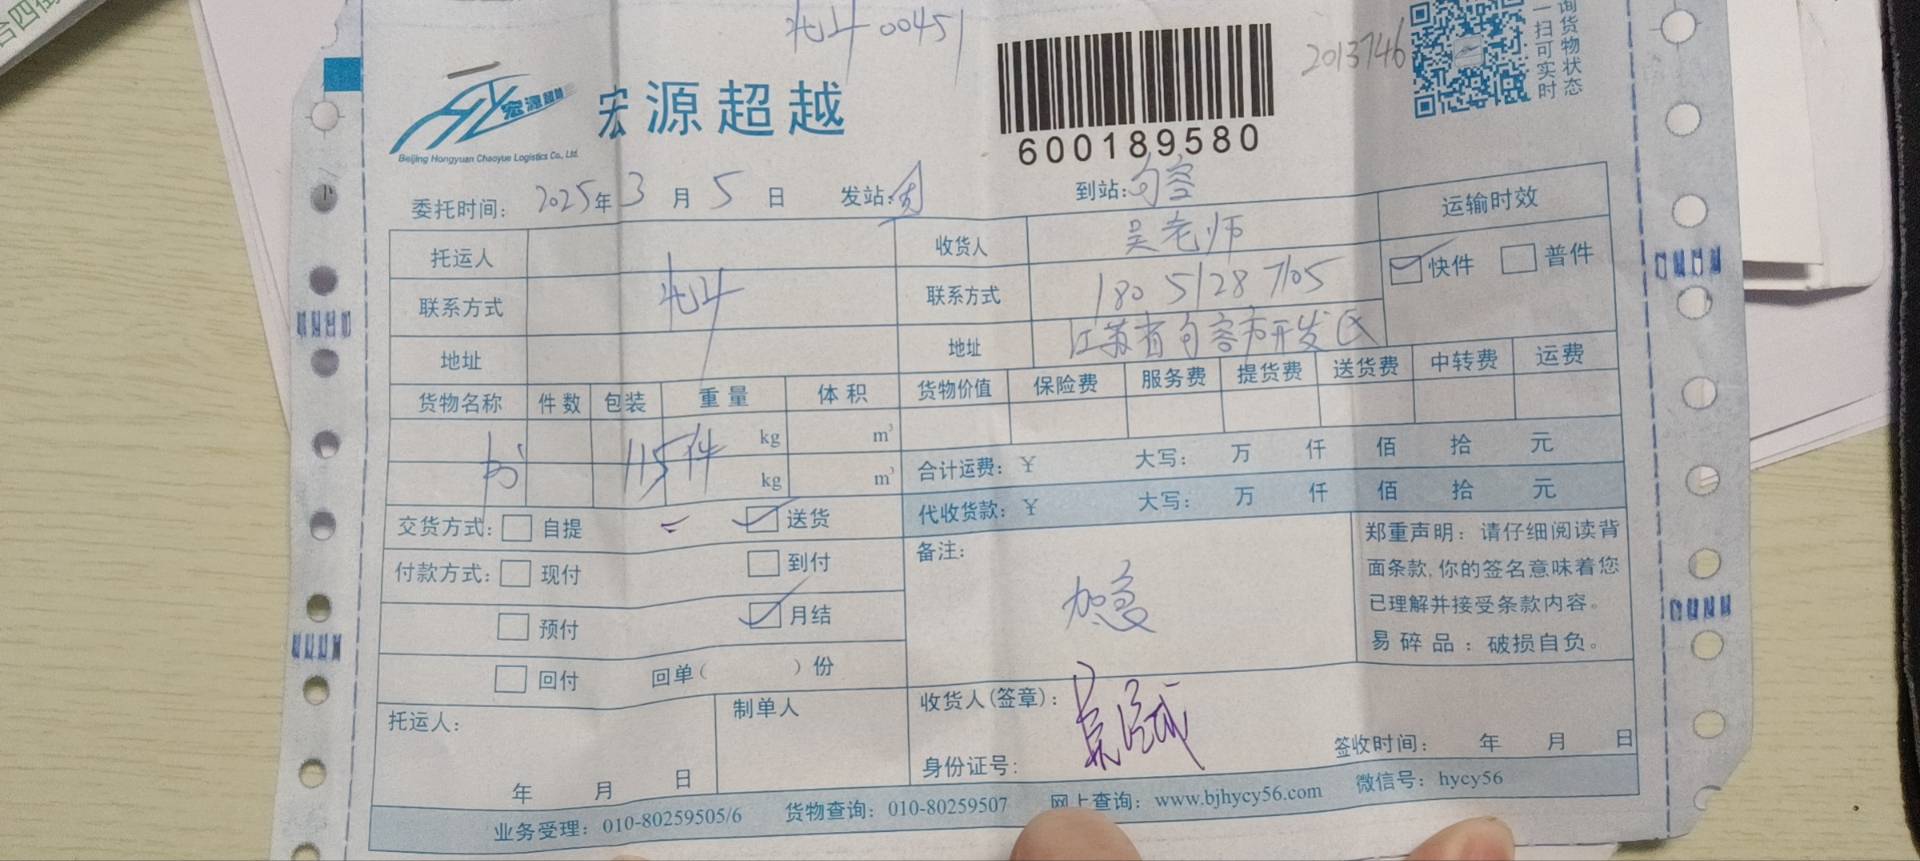 北斗00451
2013746
询货物状态
一扫可实时
宏源超越
Beijing Hongyuan Chaoyue Logistics Co., Ltd.
宏源超越
600189580
委托时间: 2025年3月5日 发站: 到站: 句容
托运人 收货人 吴老师 运输时效
联系方式 北斗 联系方式 180 5128 7105 快件 普件
地址 地址 江苏省句容市开发区
货物名称 件数 包装 重量 体积 货物价值 保险费 服务费 提货费 送货费 中转费 运费
书 115件 kg m³
kg m³
合计运费: ¥ 大写: 万 仟 佰 拾 元
代收货款: ¥ 大写: 万 仟 佰 拾 元
交货方式: 自提 送货
付款方式: 现付 到付
预付 月结
回付 回单( )份
备注:
加急
郑重声明: 请仔细阅读背
面条款,你的签名意味着您
已理解并接受条款内容。
易碎品: 破损自负。
托运人:
年 月 日
制单人
收货人(签章):
身份证号:
签收时间: 年 月 日
业务受理: 010-80259505/6 货物查询: 010-80259507 网上查询: www.bjhycy56.com 微信号: hycy56